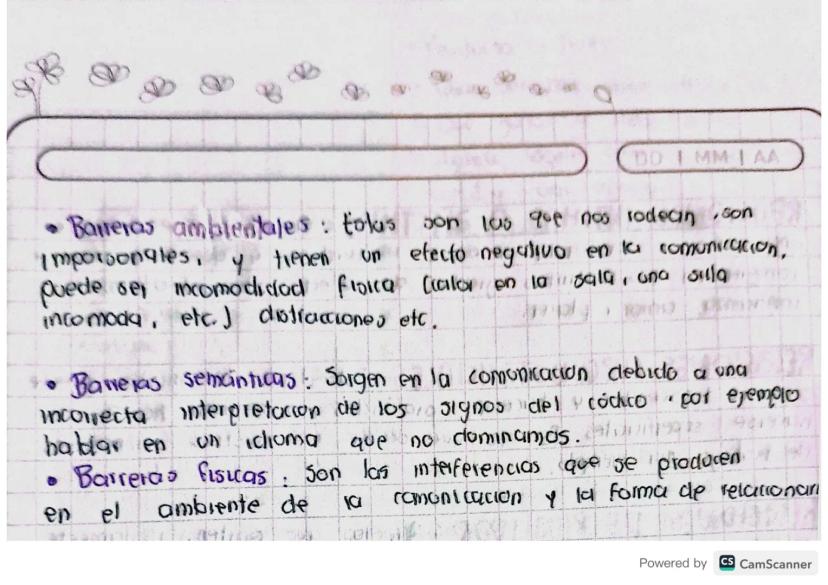 DD | MM | AA
• Barreras ambientales: estas son las que nos rodean, son
impersonales, y tienen un efecto negativo en la comunicación,
puede ser incomodidad física (calor en la sala, una silla
incomoda, etc.) distracciones etc.
• Barreras semánticas: Surgen en la comunicación debido a una
incorrecta interpretación de los signos del código. por ejemplo
hablar en un idioma que no dominamos.
• Barreras físicas: Son las interferencias que se producen
en el ambiente de la comunicación y la forma de relacionar
Powered by CS CamScanner